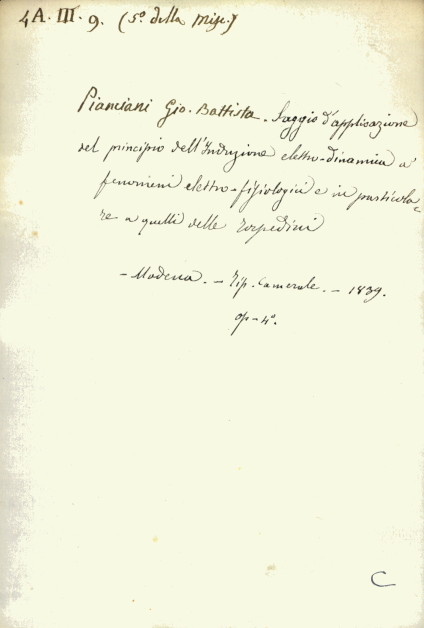 4A. III. 9. (5º della Misc.)
Pianciani Gio. Battista. Saggio d'applicazione
del principio dell'Induzione elettro-dinamica a'
fenomeni elettro-fisiologici e in particola=
re a quelli delle Torpedini
- Modena. - Tip. Camerale. - 1839.
op-4º.
C